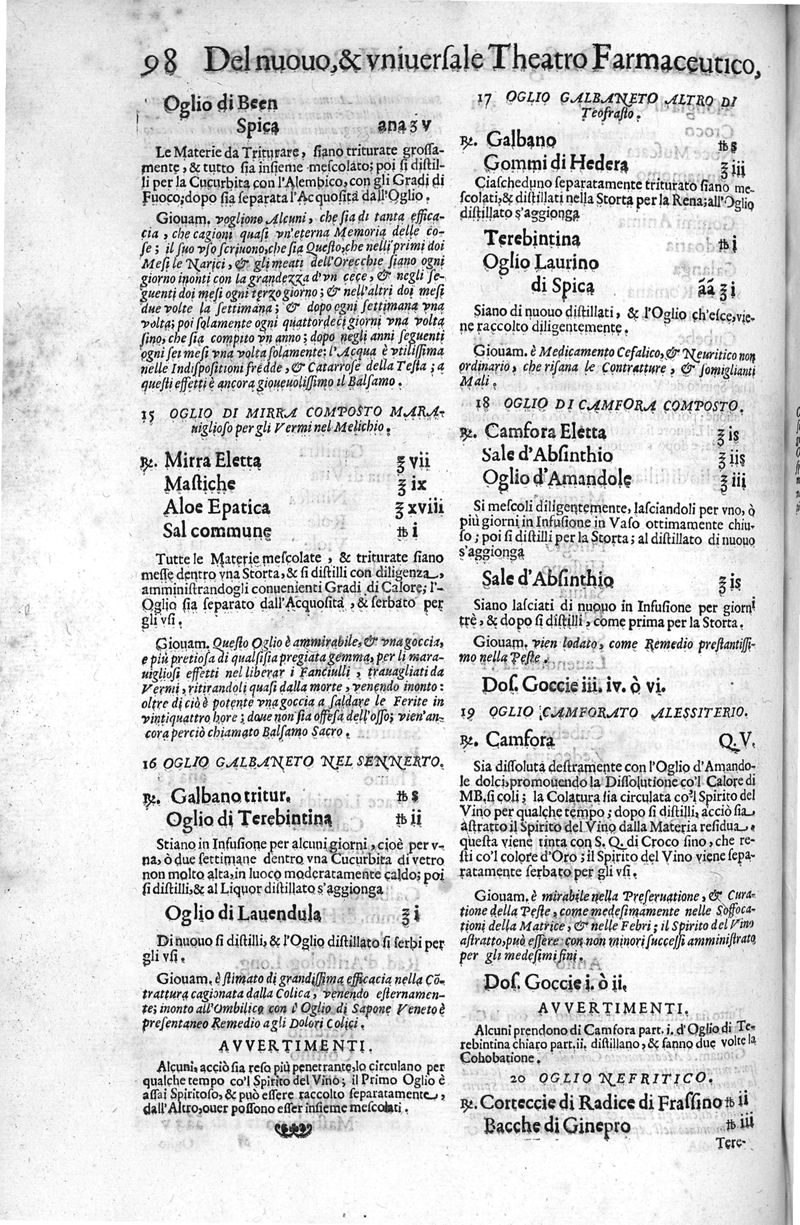 98 Del nuouo, & vniuerſale Theatro Farmaceutico,
Oglio di Been
Spica anaʒ v
Le Materie da Triturare, ſiano triturate groſſa-
mente, & tutto ſia inſieme meſcolato; poi ſi diſtil-
li per la Cucurbita con l'Alembico, con gli Gradi di
Fuoco; dopo ſia ſeparata l'Acquoſità dall'Oglio.
Giouam. vogliono Alcuni, che ſia di tanta effica-
cia, che cagioni quaſi vn'eterna Memoria delle co-
ſe; il ſuo vſo ſcriuono, che ſia Queſto, che nelli primi doi
Meſi le Narici, & gli meati dell'Orecchie ſiano ogni
giorno inonti con la grandezza d'vn cece, & negli ſe-
guenti doi meſi ogni terzo giorno; & nell'altri doi meſi
due volte la ſettimana; & dopo ogni ſettimana vna
volta; poi ſolamente ogni quattordeci giorni vna volta
ſino, che ſia compito vn anno; dopo negli anni ſeguenti
ogni ſei meſi vna volta ſolamente; l'Acqua è vtiliſſima
nelle Indiſpoſitioni fredde, & Catarroſe della Teſta; a
queſti effetti è ancora gioueuoliſſimo il Balſamo.
15 OGLIO DI MIRRA COMPOSTO MARA-
uiglioſo per gli Vermi nel Melichio.
℞. Mirra Eletta ʒ vii
Maſtiche ʒ ix
Aloe Epatica ʒ xviii
Sal commune ℔ i
Tutte le Materie meſcolate, & triturate ſiano
meſſe dentro vna Storta, & ſi diſtilli con diligenza,
amminiſtrandogli conuenienti Gradi di Calore; l'-
Oglio ſia ſeparato dall'Acquoſità, & ſerbato per
gli vſi.
Giouam. Queſto Oglio è ammirabile, & vna goccia,
e più pretioſa di qualſiſia pregiata gemma, per li mara-
uiglioſi effetti nel liberar i Fanciulli, trauagliati da
Vermi, ritirandoli quaſi dalla morte, venendo inonto:
oltre di ciò è potente vna goccia a ſaldare le Ferite in
vintiquattro hore; doue non ſia offeſa dell'oſſo; vien'an-
cora perciò chiamato Balſamo Sacro.
16 OGLIO GALBANETO NEL SENNERTO.
℞. Galbano tritur. ℔ s
Oglio di Terebintina ℔ ii
Stiano in Infuſione per alcuni giorni, cioè per v-
na, ò due ſettimane dentro vna Cucurbita di vetro
non molto alta, in luoco moderatamente caldo; poi
ſi diſtilli, & al Liquor diſtillato s'aggionga
Oglio di Lauendula ʒ i
Di nuouo ſi diſtilli, & l'Oglio diſtillato ſi ſerbi per
gli vſi.
Giouam. è ſtimato di grandiſſima efficacia nella Cõ-
trattura cagionata dalla Colica, venendo eſternamen-
te; inonto all'Ombilico con l'Oglio di Sapone Veneto è
preſentaneo Remedio agli Dolori Colici.
AVVERTIMENTI.
Alcuni, acciò ſia reſo più penetrante, lo circulano per
qualche tempo co'l Spirito del Vino; il Primo Oglio è
aſſai Spiritoſo, & può eſſere raccolto ſeparatamente,
dall'Altro, ouer poſſono eſſer inſieme meſcolati.
17 OGLIO GALBANETO ALTRO DI
Teofraſto.
℞. Galbano ℔ s
Gommi di Hedera ʒ iii
Ciaſcheduno ſeparatamente triturato ſiano me-
ſcolati, & diſtillati nella Storta per la Rena; all'Oglio
diſtillato s'aggionga
Terebintina ℔ i
Oglio Laurino
di Spica ãã ʒ i
Siano di nuouo diſtillati, & l'Oglio ch'eſce, vie-
ne raccolto diligentemente.
Giouam. è Medicamento Cefalico, & Neuritico non
ordinario, che riſana le Contratture, & ſomiglianti
Mali.
18 OGLIO DI CAMFORA COMPOSTO.
℞. Camfora Eletta ʒ is
Sale d'Abſinthio ʒ iis
Oglio d'Amandole ʒ iii
Si meſcoli diligentemente, laſciandoli per vno, ò
più giorni in Infuſione in Vaſo ottimamente chiu-
ſo; poi ſi diſtilli per la Storta; al diſtillato di nuouo
s'aggionga
Sale d'Abſinthio ʒ is
Siano laſciati di nuouo in Infuſione per giorni
trè, & dopo ſi diſtilli, come prima per la Storta.
Giouam. vien lodato, come Remedio preſtantiſſi-
mo nella Peſte.
Doſ. Goccie iii. iv. ò vi.
19 OGLIO CAMFORATO ALESSITERIO.
℞. Camfora Q. V.
Sia diſſoluta deſtramente con l'Oglio d'Amando-
le dolci, promouendo la Diſſolutione co'l Calore di
MB. ſi coli; la Colatura ſia circulata co'l Spirito del
Vino per qualche tempo; dopo ſi diſtilli, acciò ſia
aſtratto il Spirito del Vino dalla Materia reſidua,
queſta viene tinta con S. Q. di Croco fino, che re-
ſti co'l colore d'Oro; il Spirito del Vino viene ſepa-
ratamente ſerbato per gli vſi.
Giouam. è mirabile nella Preſeruatione, & Cura-
tione della Peſte, come medeſimamente nelle Soffoca-
tioni della Matrice, & nelle Febri; il Spirito del Vino
aſtratto, può eſſere con non minori ſucceſſi amminiſtrato
per gli medeſimi fini.
Doſ. Goccie i. ò ii.
AVVERTIMENTI.
Alcuni prendono di Camfora part. i. d'Oglio di Te-
rebintina chiaro part. ii, diſtillano, & fanno due volte la
Cohobatione.
20 OGLIO NEFRITICO.
℞. Corteccie di Radice di Fraſſino ℔ ii
Bacche di Ginepro ℔ iii
Tere-